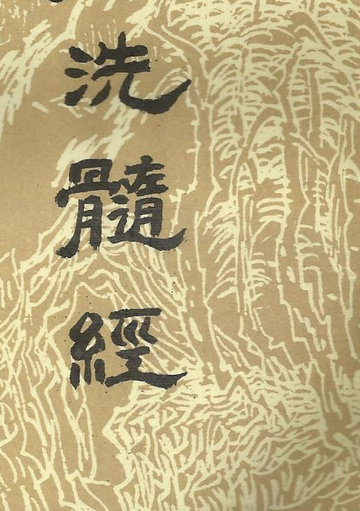 洗髓經